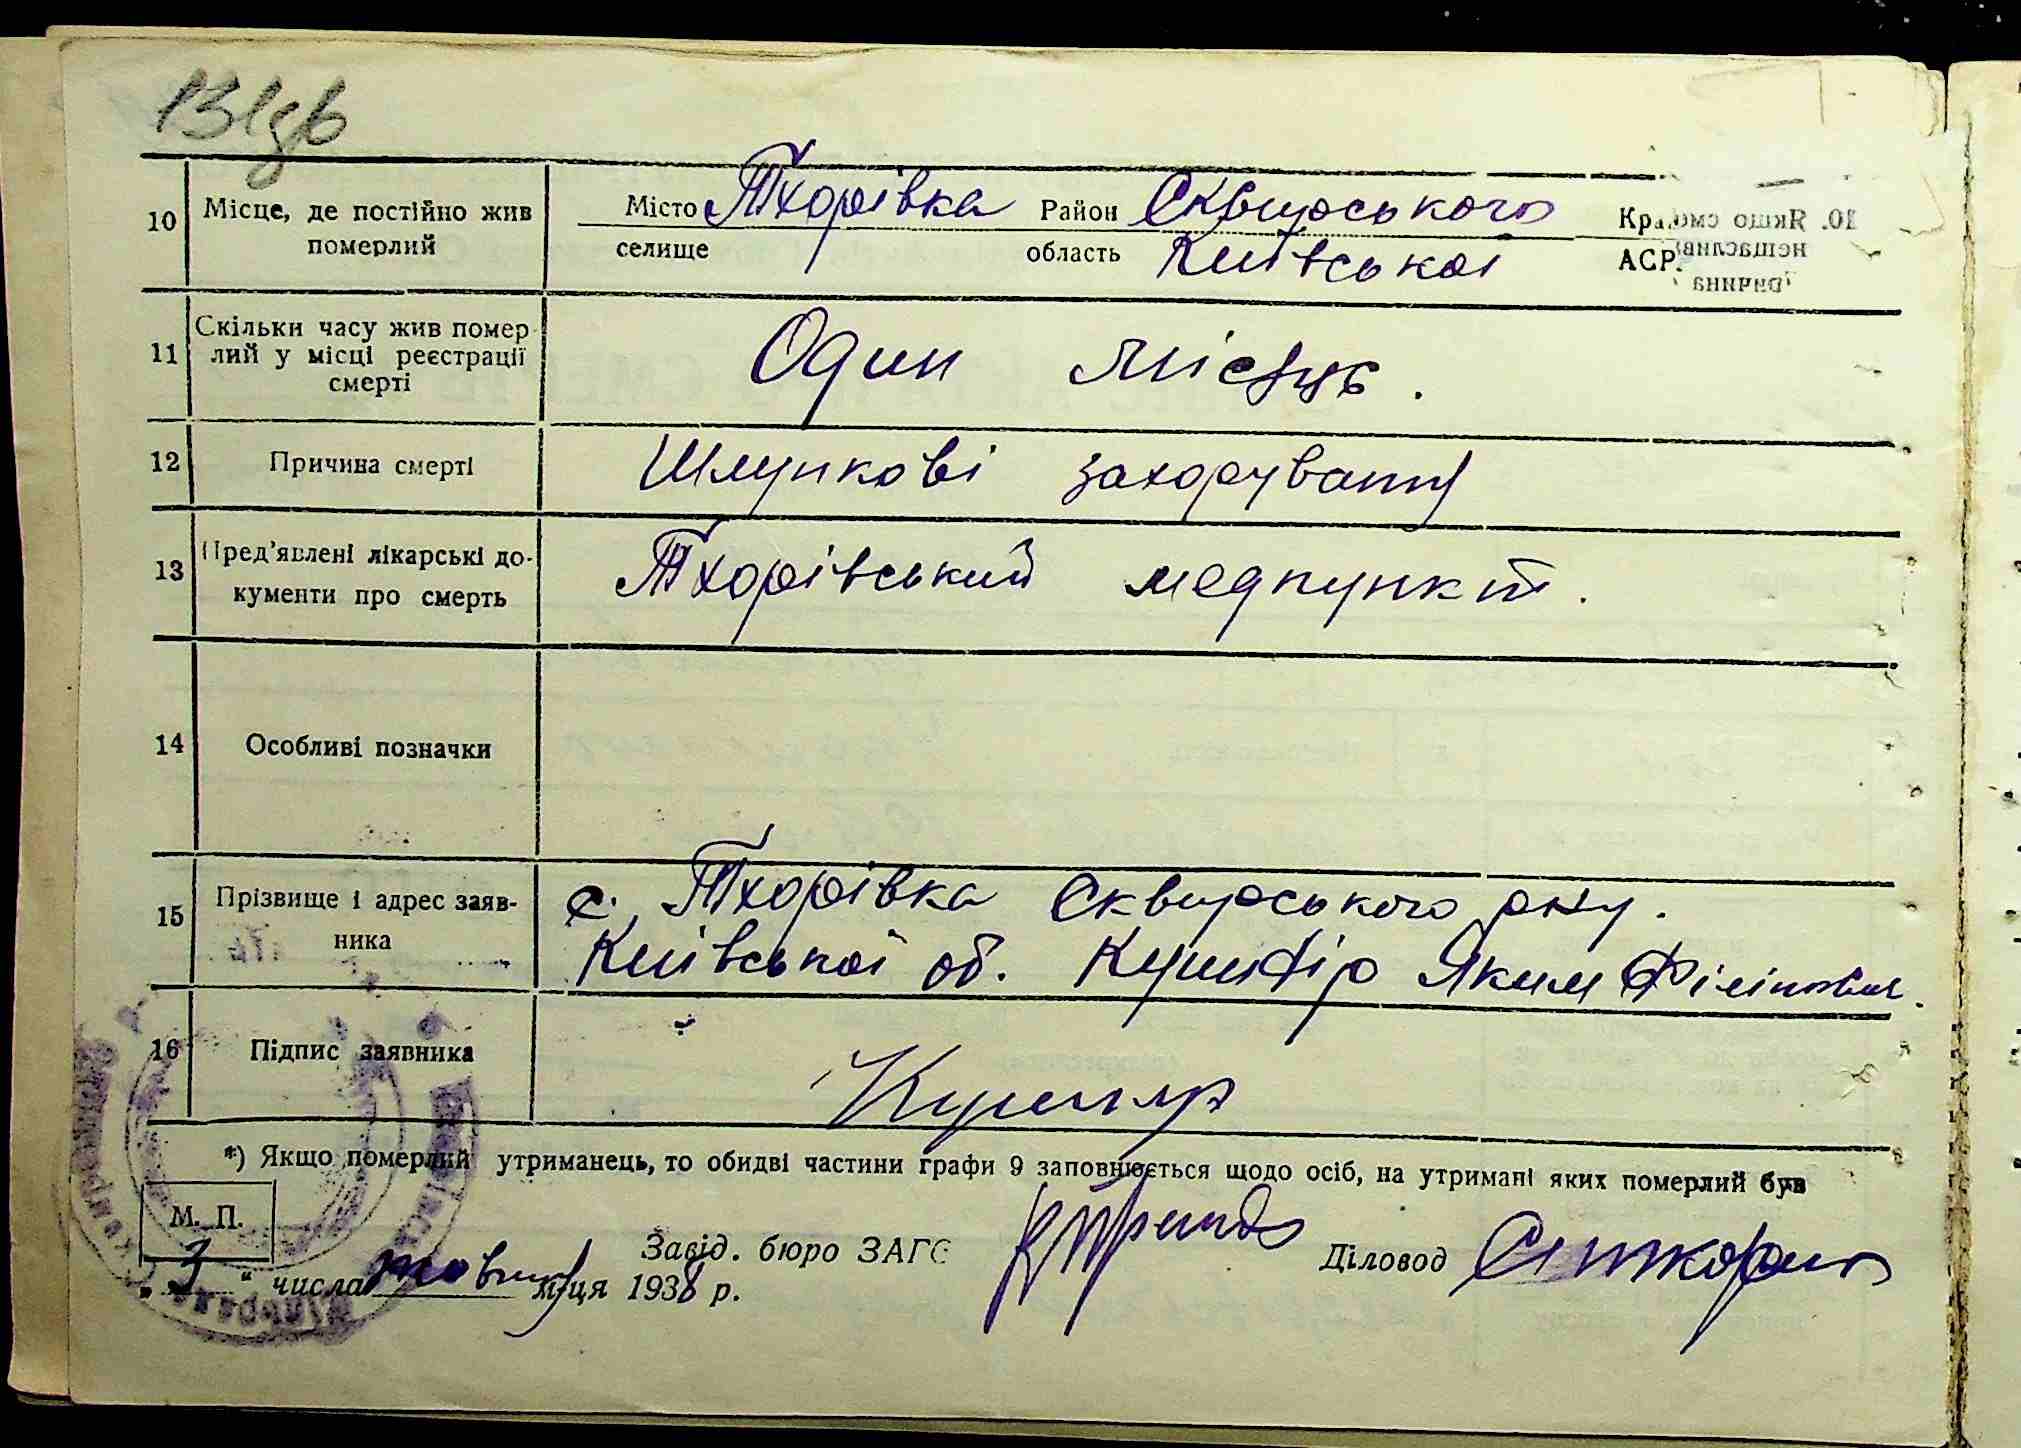 10 Місце, де постійно жив померлий
Місто Тхорівка Район Сквирського
селище область Київської АСР
11 Скільки часу жив помер-
лий у місці реєстрації
смерті
Один місяць.
12 Причина смерті Шлункові захорування
13 Пред'явлені лікарські до-
кументи про смерть
Тхорівський медпункт.
14 Особливі позначки
15 Прізвище і адрес заяв-
ника
с. Тхорівка Сквирського р-ну.
Київської об. Кушнір Яким Філіпович.
16 Підпис заявника Кушнір
*) Якщо померлий утриманець, то обидві частини графи 9 заповнюється щодо осіб, на утримані яких померлий був
М. П.
Завід. бюро ЗАГС Діловод
„ 3 “ числа жовтня м-ця 1938 р.